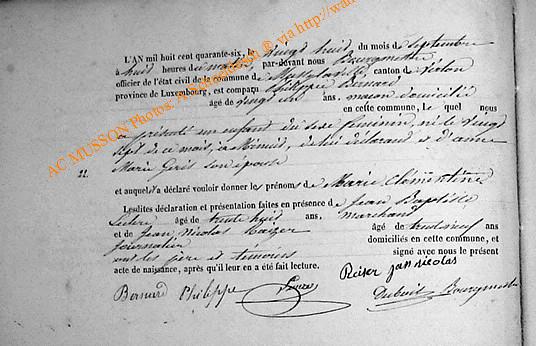 L'AN mil huit cent quarante-six, le vingt huit du mois de septembre
à huit heures du matin, par-devant nous Bourgmestre
officier de l'état civil de la commune de Mussy la ville, canton de Virton
province de Luxembourg, est comparu Philippe Bernard
âgé de vingt ans, maçon domicilié
en cette commune, Lequel nous
a présenté un enfant du sexe féminin, né le vingt
sept de ce mois, à de lui déclarant et d'anne
22. Marie son épouse
et auquel a déclaré vouloir donner les prénoms de Marie Clémentine
Lesdites déclaration et présentation faites en présence de Jean Baptiste
âgé de trente huit ans, marchand
et de Jean Nicolas âgé de trente neuf ans
journalier domiciliés en cette commune, et
ont les père et témoins signé avec nous le présent
acte de naissance, après qu'il leur en a été fait lecture.
Reiser jan nicolas
Bernard Philippe
Bourgmestre
AC MUSSON Photos: A